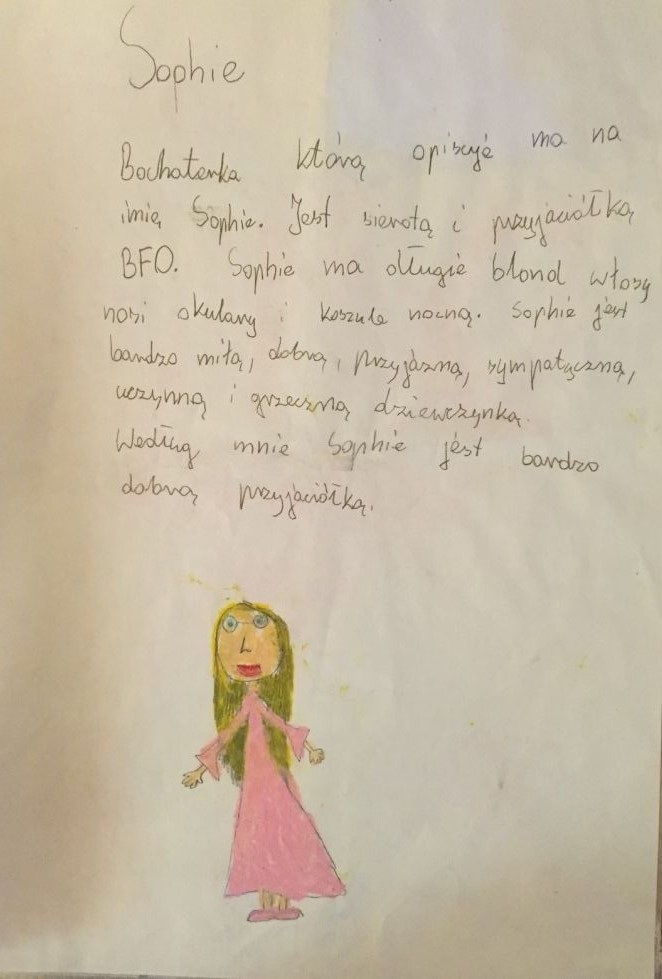 Sophie
Bochaterka którą opisuje ma na
imię Sophie. Jest sierotą i przyjaciółką
BFO. Sophie ma długie blond włosy
nosi okulary i koszule nocną. Sophie jest
bardzo miłą, dobrą, przyjazną, sympatyczną,
uczynną i grzeczną dziewczynką.
Według mnie Sophie jest bardzo
dobrą przyjaciółką.